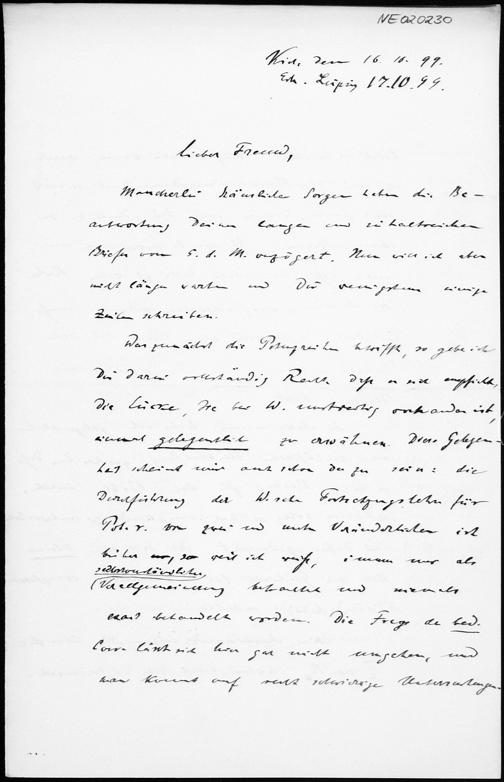 NE020230
Kiel, den 16.10.99.
Erh. Leipzig 17.10.99.
Lieber Freund,
Mancherlei häusliche Sorgen haben die Be-
antwortung Deines langen und inhaltreichen
Briefes vom 5. d. M. verzögert. Nun will ich aber
nicht länger warten und Dir wenigstens einige
Zeilen schreiben.
Was zunächst die Potenzreihen betrifft, so gebe ich
Dir darin vollständig Recht, daß es sich empfiehlt,
die Lücke, die bei W. unstreitig vorhanden ist,
einmal gelegentlich zu erwähnen. Diese Gelegen-
heit scheint mir auch schon da zu sein: die
Durchführung der W.schen Fortsetzungslehre für
Pot. r. von zwei und mehr Veränderlichen ist
bisher so weit ich weiß, immer nur als
selbstverständliche
Verallgemeinerung betrachtet und niemals
exact behandelt worden. Die Frage der bed.
Conv. läßt sich hier gar nicht umgehen, und
man kommt auf recht schwierige Untersuchungen